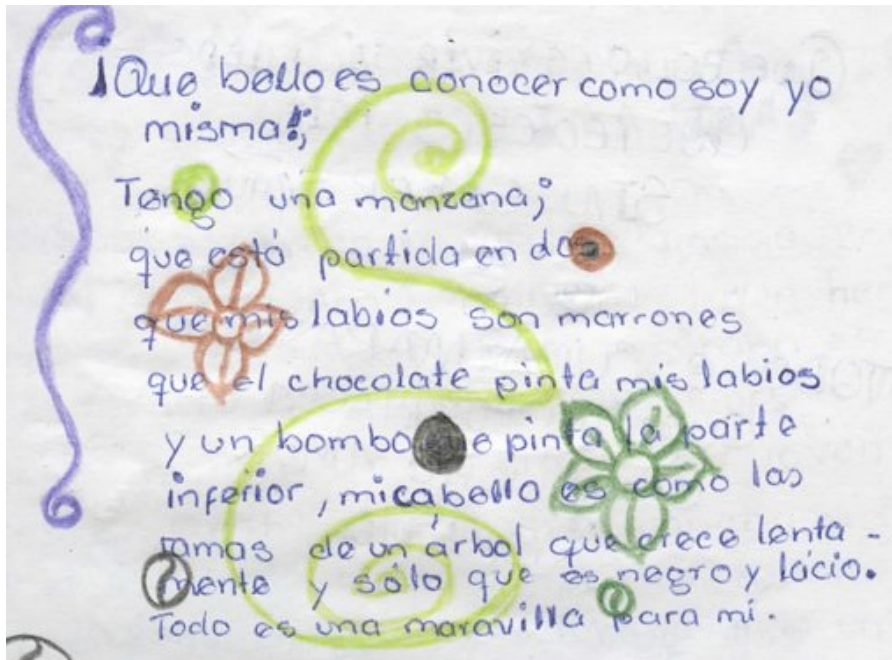 ¡Que bello es conocer como soy yo
misma!;
Tengo una manzana;
que está partida en dos
que mis labios son marrones
que el chocolate pinta mis labios
y un bombo que pinta la parte
inferior, mi cabello es como las
ramas de un árbol que crece lenta-
mente y sólo que es negro y lácio.
Todo es una maravilla para mi.